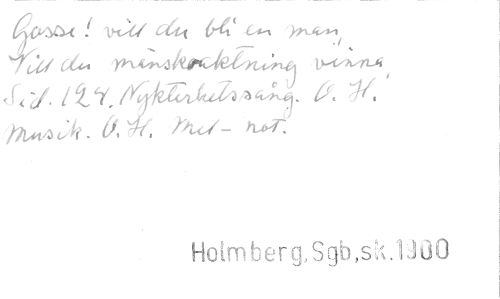 Gosse! vill du bli en man,
Vill du människoaktning vinna
Sid. 124. Nykterhetssång. O. H.
Musik. O. H. Mel-not.
Holmberg,Sgb,sk.1900